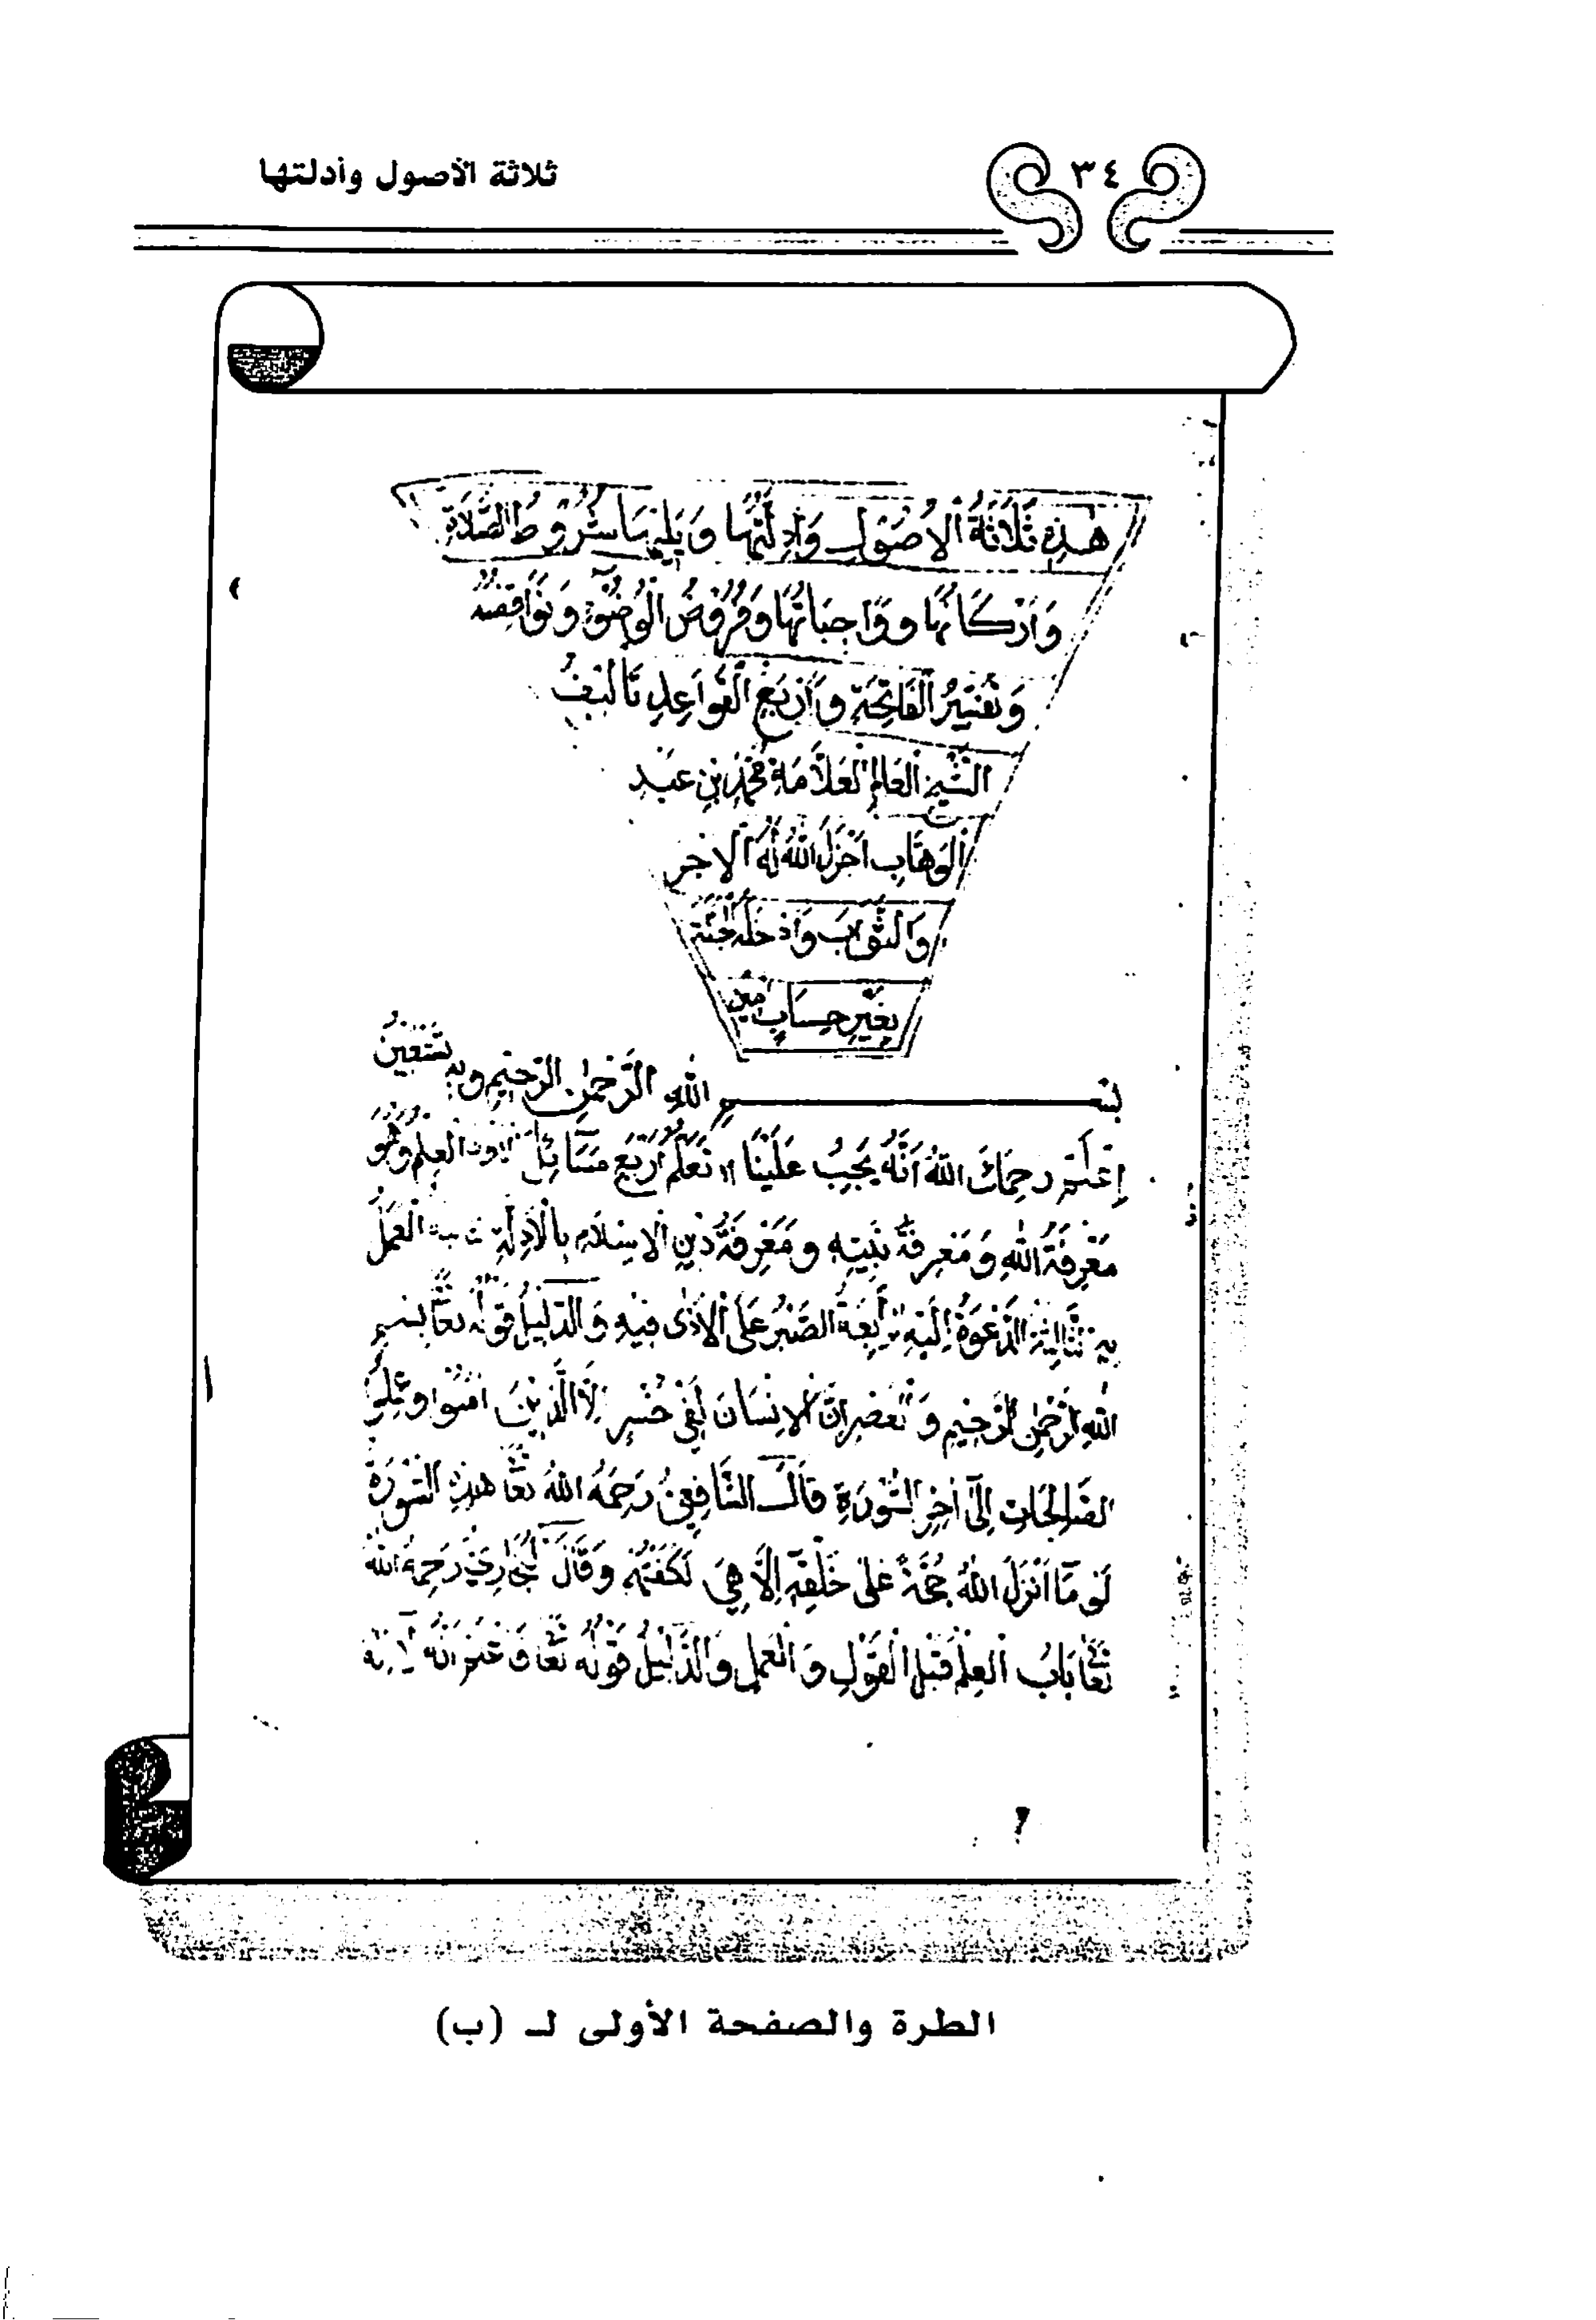 ٣٤
ثلاثة الأصول وأدلتها
هَذِهِ ثَلَاثَةُ الْأُصُولِ وَأَدِلَّتُهَا وَيَلِيهَا شُرُوطُ الصَّلَاةِ
وَأَرْكَانُهَا وَوَاجِبَاتُهَا وَفُرُوضُ الْوُضُوءِ وَنَوَاقِضُهُ
وَتَفْسِيرُ الْفَاتِحَةِ وَأَرْبَعُ الْقَوَاعِدِ تَالِيفُ
الشَّيْخِ الْعَالِمِ الْعَلَّامَةِ مُحَمَّدِ بْنِ عَبْدِ
الْوَهَّابِ أَجْزَلَ اللهُ لَهُ الْأَجْرَ
وَالثَّوَابَ وَأَدْخَلَهُ الْجَنَّةَ
بِغَيْرِ حِسَابٍ آمِين
بســـم اللهِ الرَّحْمٰنِ الرَّحِيمِ وَبِهِ نَسْتَعِينُ
اِعْلَمْ رَحِمَكَ اللهُ أَنَّهُ يَجِبُ عَلَيْنَا تَعَلُّمُ أَرْبَعِ مَسَائِلَ الْعِلْمُ وَهُوَ
مَعْرِفَةُ اللهِ وَمَعْرِفَةُ نَبِيِّهِ وَمَعْرِفَةُ دِينِ الْإِسْلَامِ بِالْأَدِلَّةِ الْعَمَلُ
بِهِ الثَّالِثَةُ الدَّعْوَةُ إِلَيْهِ الرَّابِعَةُ الصَّبْرُ عَلَى الْأَذَى فِيهِ وَالدَّلِيلُ قَوْلُهُ تَعَا بِسْمِ
اللهِ الرَّحْمٰنِ الرَّحِيمِ وَالْعَصْرِ إِنَّ الْإِنْسَانَ لَفِي خُسْرٍ إِلَّا الَّذِينَ آمَنُوا وَعَمِلُوا
الصَّالِحَاتِ إِلَى آخِرِ السُّورَةِ قَالَ الشَّافِعِيُّ رَحِمَهُ اللهُ تَعَا هَذِهِ السُّورَةُ
لَوْ مَا أَنْزَلَ اللهُ حُجَّةً عَلَى خَلْقِهِ إِلَّا هِيَ لَكَفَتْهُمْ وَقَالَ الْبُخَارِيُّ رَحِمَهُ اللهُ
تَعَا بَابُ الْعِلْمِ قَبْلَ الْقَوْلِ وَالْعَمَلِ وَالدَّلِيلُ قَوْلُهُ تَعَا فَاعْلَمْ أَنَّهُ لَا إِلٰهَ
الطرة والصفحة الأولى لـ (ب)